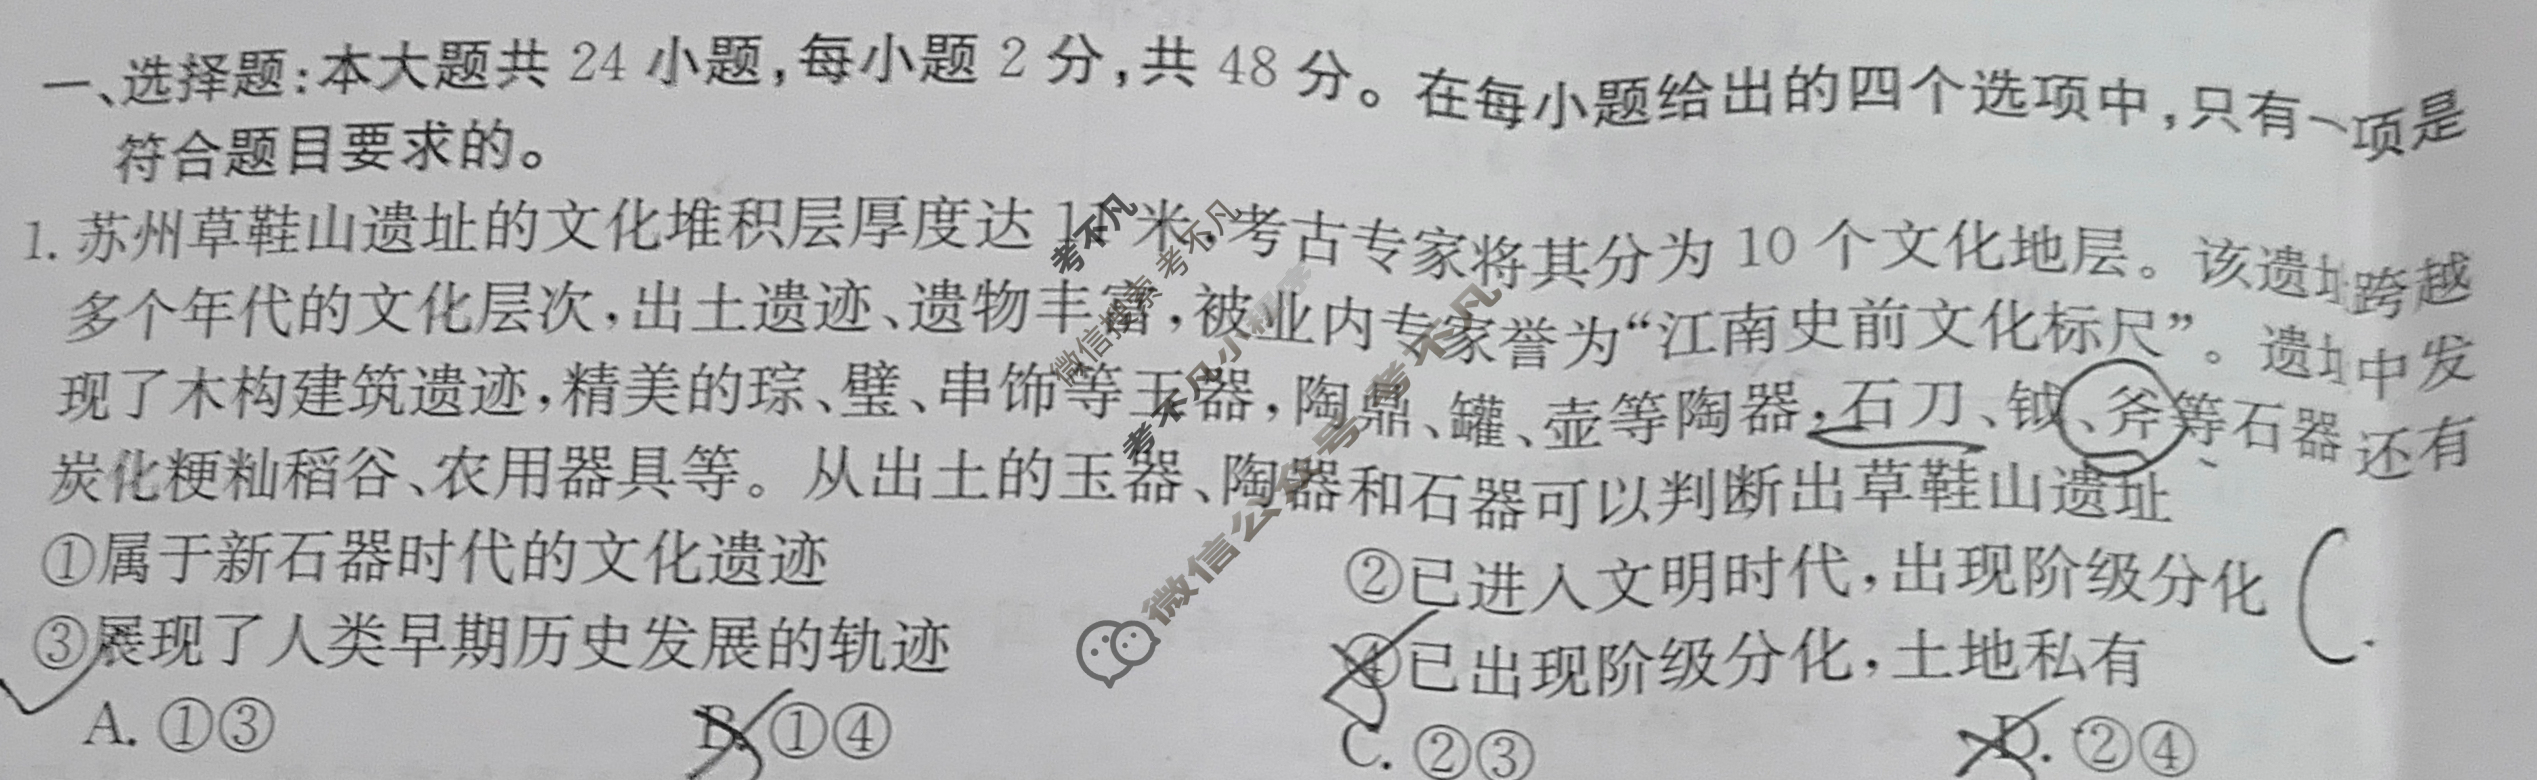 一、选择题:本大题共 24 小题,每小题 2 分,共 48 分。在每小题给出的四个选项中,只有一项是
符合题目要求的。
1. 苏州草鞋山遗址的文化堆积层厚度达 11 米,考古专家将其分为 10 个文化地层。该遗址跨越
多个年代的文化层次,出土遗迹、遗物丰富,被业内专家誉为“江南史前文化标尺”。遗址中发
现了木构建筑遗迹,精美的琮、璧、串饰等玉器,陶鼎、罐、壶等陶器,石刀、钺、斧等石器还有
炭化粳籼稻谷、农用器具等。从出土的玉器、陶器和石器可以判断出草鞋山遗址
①属于新石器时代的文化遗迹 ②已进入文明时代,出现阶级分化
③展现了人类早期历史发展的轨迹 ④已出现阶级分化,土地私有
A. ①③ B. ①④ C. ②③ D. ②④
考不凡
微信搜索 考不凡
考不凡小程序
微信公众号 考不凡